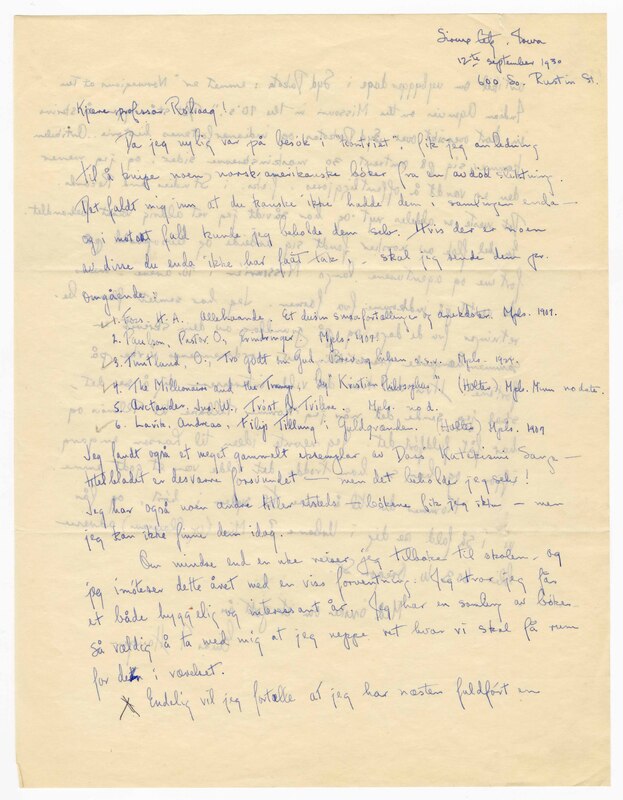 Sioux City, Iowa
12te september 1930
600 So. Rustin St.
Kjære professor Rölvaag!
Da jeg nylig var på besök i kontriet, fik jeg anledning
til å kruje noen norsk-amerikanske böker fra en avdöd slektning.
Det faldt mig inn at du kanske ikke hadde dem i samlingen enda —
og i motsat fald kunde jeg beholde dem selv. Hvis der er noen
av disse du enda ikke har fåt tak i, skal jeg sende dem pr.
omgående.
1. Foss, H. A. Allehaande. Et dusin smaafortellinger og anekdoter. Mpls. 1907.
2. Paulson, Pastor O., Erindringer. Mpls. 1907.
3. Tinitland, O., Tro godt om Gud. Brev og liken o.s.v. Mpls. 1924.
4. The Millionaire and the Tramp, by "Kristian Philosopher" (Holter) Mpls. Minn no date.
5. Arctander, Jno. W., Tröst i Tvilne. Mpls. no d.
6. Lavik, Andreas, Filip Tillung i Guldgraven. (Holter) Mpls. 1907
Jeg fandt også et meget gammelt eksemplar av Dass Katekismi Sange —
titelbladet er desværre forsvundet — men det beholder jeg selv!
Jeg har også noen andre titler etsteds — bökene fik jeg ikke — men
jeg kan ikke finne dem idag.
Om mindre end en uke reiser jeg tilbake til skolen — og
jeg imöteser dette året med en viss forventning. Jeg tror jeg får
et både hyggelig og interessant år. Jeg har en samling av böker
så vældig å ta med mig at jeg neppe vet hvor vi skal få rum
for dem i værelset.
X Endelig vil jeg fortælle at jeg har næsten fuldfört en